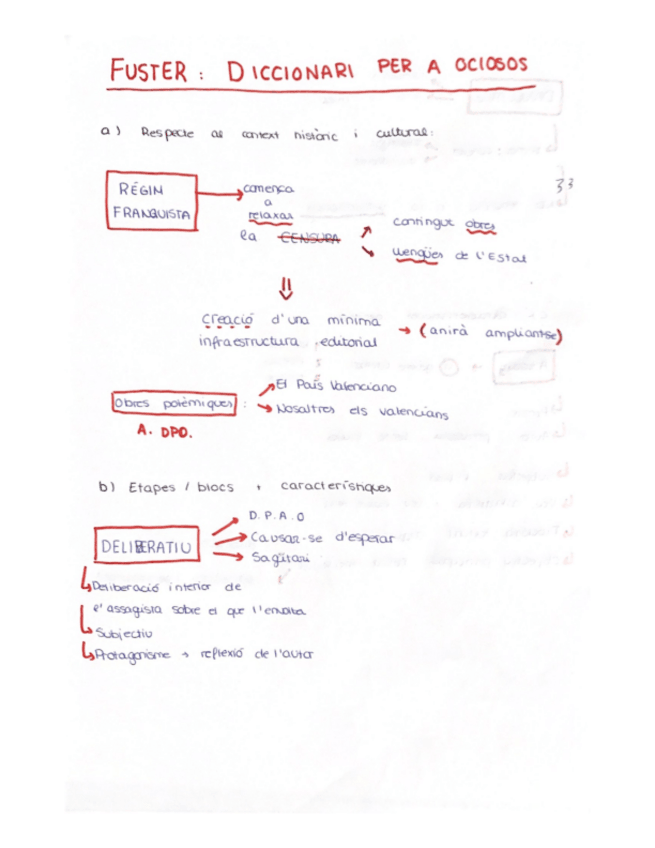 FUSTER: DICCIONARI PER A OCIOSOS
a) Respecte al context històric i cultural:
RÈGIM FRANQUISTA → comença a relaxar la CENSURA
contingut obres
llengües de l'Estat
33
⇓
Creació d'una mínima infraestructura editorial → (anirà ampliant-se)
Obres polèmiques:
→ El País Valenciano
→ Nosaltres els valencians
A. DPO.
b) Etapes / blocs + característiques
DELIBERATIU
→ D.P.A.O
→ Causar-se d'esperar
→ Sagitari
↳ Deliberació interior de
l'assagista sobre el que l'envolta
↳ Subjectiu
↳ Protagonisme → reflexió de l'autor